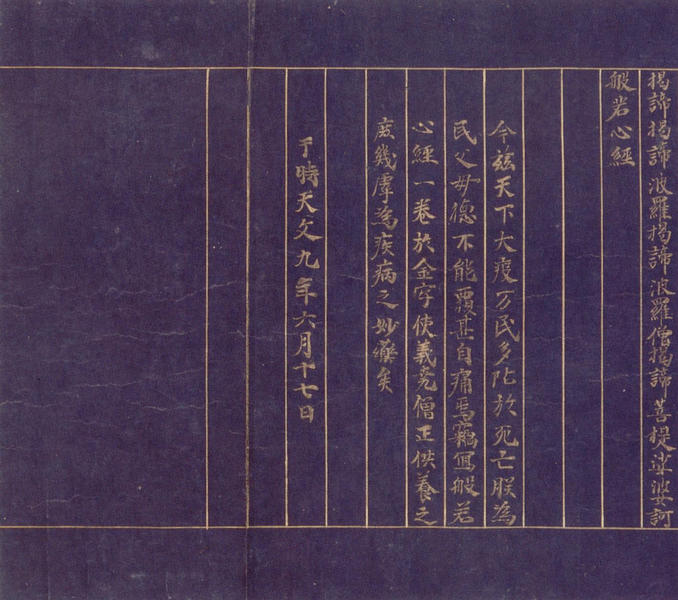 揭諦揭諦波羅揭諦波羅僧揭諦菩提薩婆訶
般若心経
今茲天下大疫万民多阽於死亡朕為
民父母徳不能覆甚自痛焉竊写般若
心経一巻於金字使義尭僧正供養之
庶幾虖為疾病之妙薬矣
于時天文九年六月十七日